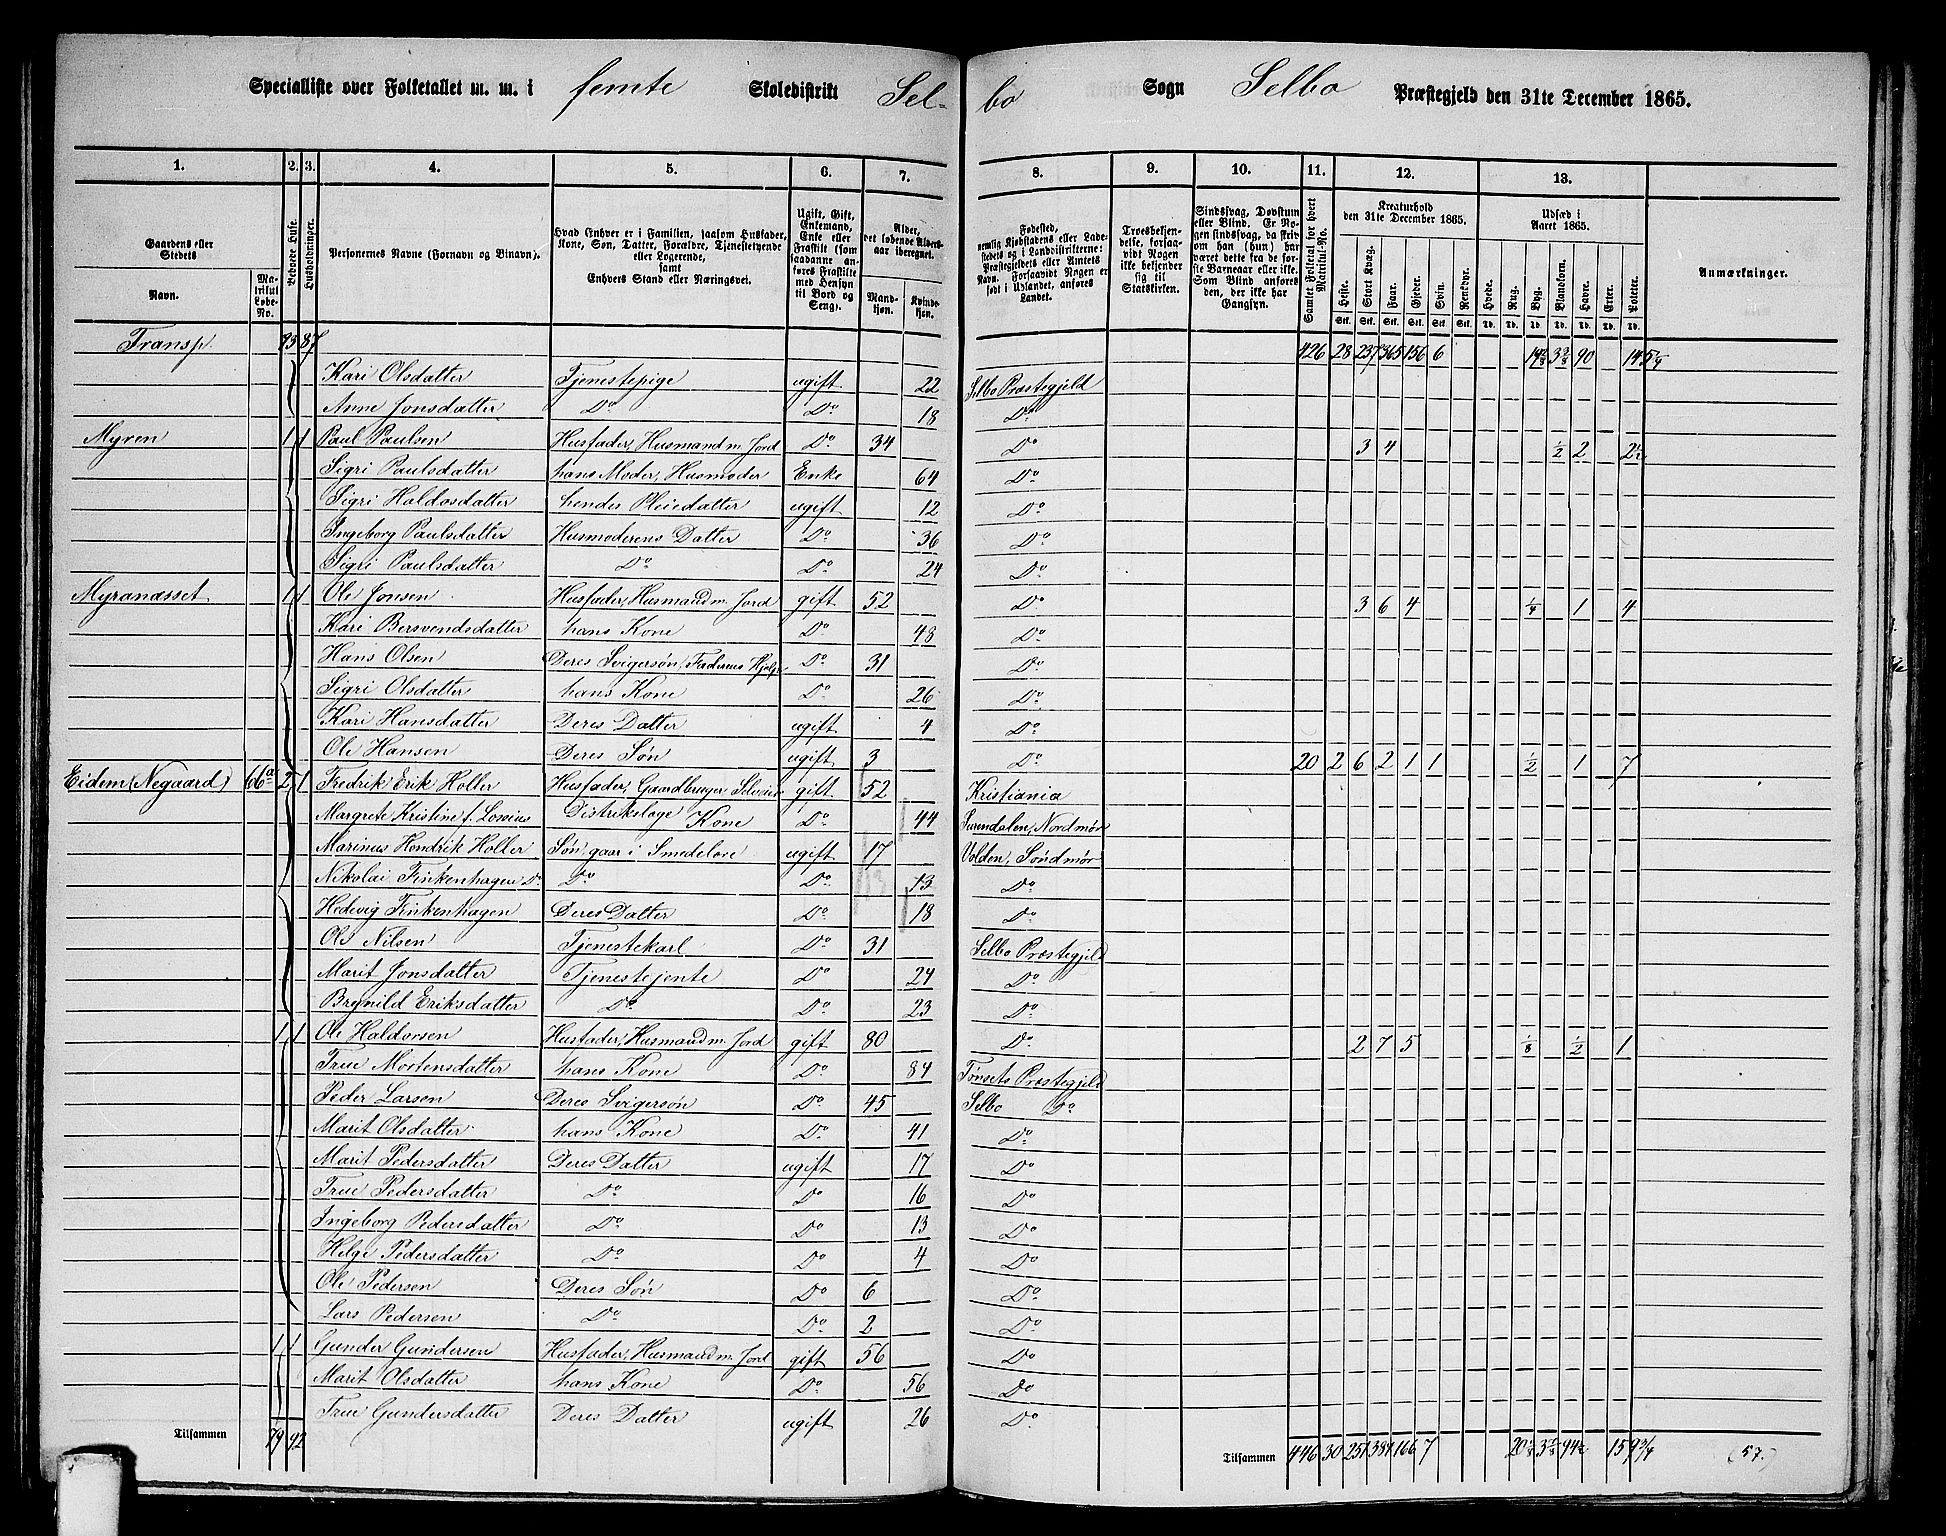 Specialliste over Folketallet m. m. i femte Skoledistrikt Sel- bo Sogn Selbo Præstegjeld den 31te December 1865.
1. 2. 3. 4. 5. 6. 7. 8. 9. 10. 11. 12. 13.
Gaardens eller Stedets Navn. Matrikul Løbe-No. Beboede Huse. Husholdninger. Personernes Navne (Fornavn og Binavn). Hvad Enhver er i Familien, saasom Husfader, Kone, Søn, Datter, Forældre, Tjenestetyende eller Logerende, samt Enhvers Stand eller Næringsvei. Ugift, Gift, Enkemand, Enke eller Fraskilt (som saadanne anføres Fraskilte med Hensyn til Bord og Seng). Alder, det løbende Alders-aar iberegnet. Mandkøn. Kvindekøn. Fødested, nemlig Kjøbstadens eller Ladestedets og i Landdistrikterne: Præstegjeldets eller Amtets Navn. Forsaavidt Nogen er født i Udlandet, anføres Landet. Troesbekjendelse, forsaavidt Nogen ikke bekjender sig til Statskirken. Sindssvag, Døvstum eller Blind. Er Nogen sindssvag, da skrives om han (hun) har været dette fra de første Barneaar eller ikke. Som Blind anføres den, der ikke har Gangsyn. Samlet Folketal for hvert Matrikul-No. Kreaturhold den 31te December 1865. Heste. Stort Kvæg. Faar. Gjeder. Svin. Rensdyr. Udsæd i Aaret 1865. Hvede. Rug. Byg. Blandkorn. Havre. Erter. Poteter. Anmærkninger.
Stk. Stk. Stk. Stk. Stk. Stk. Td. Td. Td. Td. Td. Td. Td.
Transp. 87 426 28 237 365 156 6 90
Kari Olsdatter Tjenestepige ugift 22 Selbo Præstegjeld
Anne Jonsdatter Do Do 18 Do
Myren 1 1 Paul Paulsen Husfader, Husmand m. Jord Do 34 Do 3 4 ½ 2 2½
Sigri Paulsdatter hans Moder, Husmoder Enke 64 Do
Sigri Haldosdatter hendes Pleiedatter ugift 12 Do
Ingeborg Paulsdatter Husmoderens Datter Do 36 Do
Sigri Paulsdatter Do Do 24 Do
Myranæsset 1 1 Ole Jonsen Husfader, Husmand m. Jord gift 52 Do 3 6 4 ¼ 1 4
Kari Bersvendsdatter hans Kone Do 48 Do
Hans Olsen Deres Svigersøn, Faderens Hjelp Do 31 Do
Sigri Olsdatter hans Kone Do 26 Do
Kari Hansdatter Deres Datter ugift 4 Do
Ole Hansen Deres Søn ugift 3 Do
Eidem (Negaard) 66a 2 1 Fredrik Erik Holler Husfader, Gaardbruger Selveier gift 52 Kristiania 20 2 6 2 1 1 ½ 1 7
Margrete Kristine f. Lossius Distriktslæge Kone Do 44 Surendalen, Nordmør
Marinus Hendrik Holler Søn, gaar i Smedelære ugift 17 Volden, Søndmør
Nikolai Finkenhagen Do Do Do 13 Do
Hedevig Finkenhagen Deres Datter Do 18 Do
Ole Nilsen Tjenestekarl Do 31 Selbo Præstegjeld
Marit Jonsdatter Tjenestejente Do 24 Do
Brynild Eriksdatter Do Do 23 Do
1 1 Ole Haldorsen Husfader, Husmand m. Jord gift 80 Do 2 7 5 ⅛ ½ 1
True Mortensdatter hans Kone Do 84 Tønsets Præstegjeld
Peder Larsen Deres Svigersøn Do 45 Selbo Do
Marit Olsdatter hans Kone Do 41 Do
Marit Pedersdatter Deres Datter ugift 17 Do
True Pedersdatter Do Do 16 Do
Ingeborg Pedersdatter Do Do 13 Do
Helge Pedersdatter Do Do 4 Do
Ole Pedersen Deres Søn Do 6 Do
Lars Pedersen Do Do 2 Do
1 1 Gunder Gundersen Husfader, Husmand m. Jord gift 56 Do
Marit Olsdatter hans Kone Do 56 Do
True Gundersdatter Deres Datter ugift 26 Do
Tilsammen 79 92 Tilsammen 446 30 251 384 166 7 (57.)